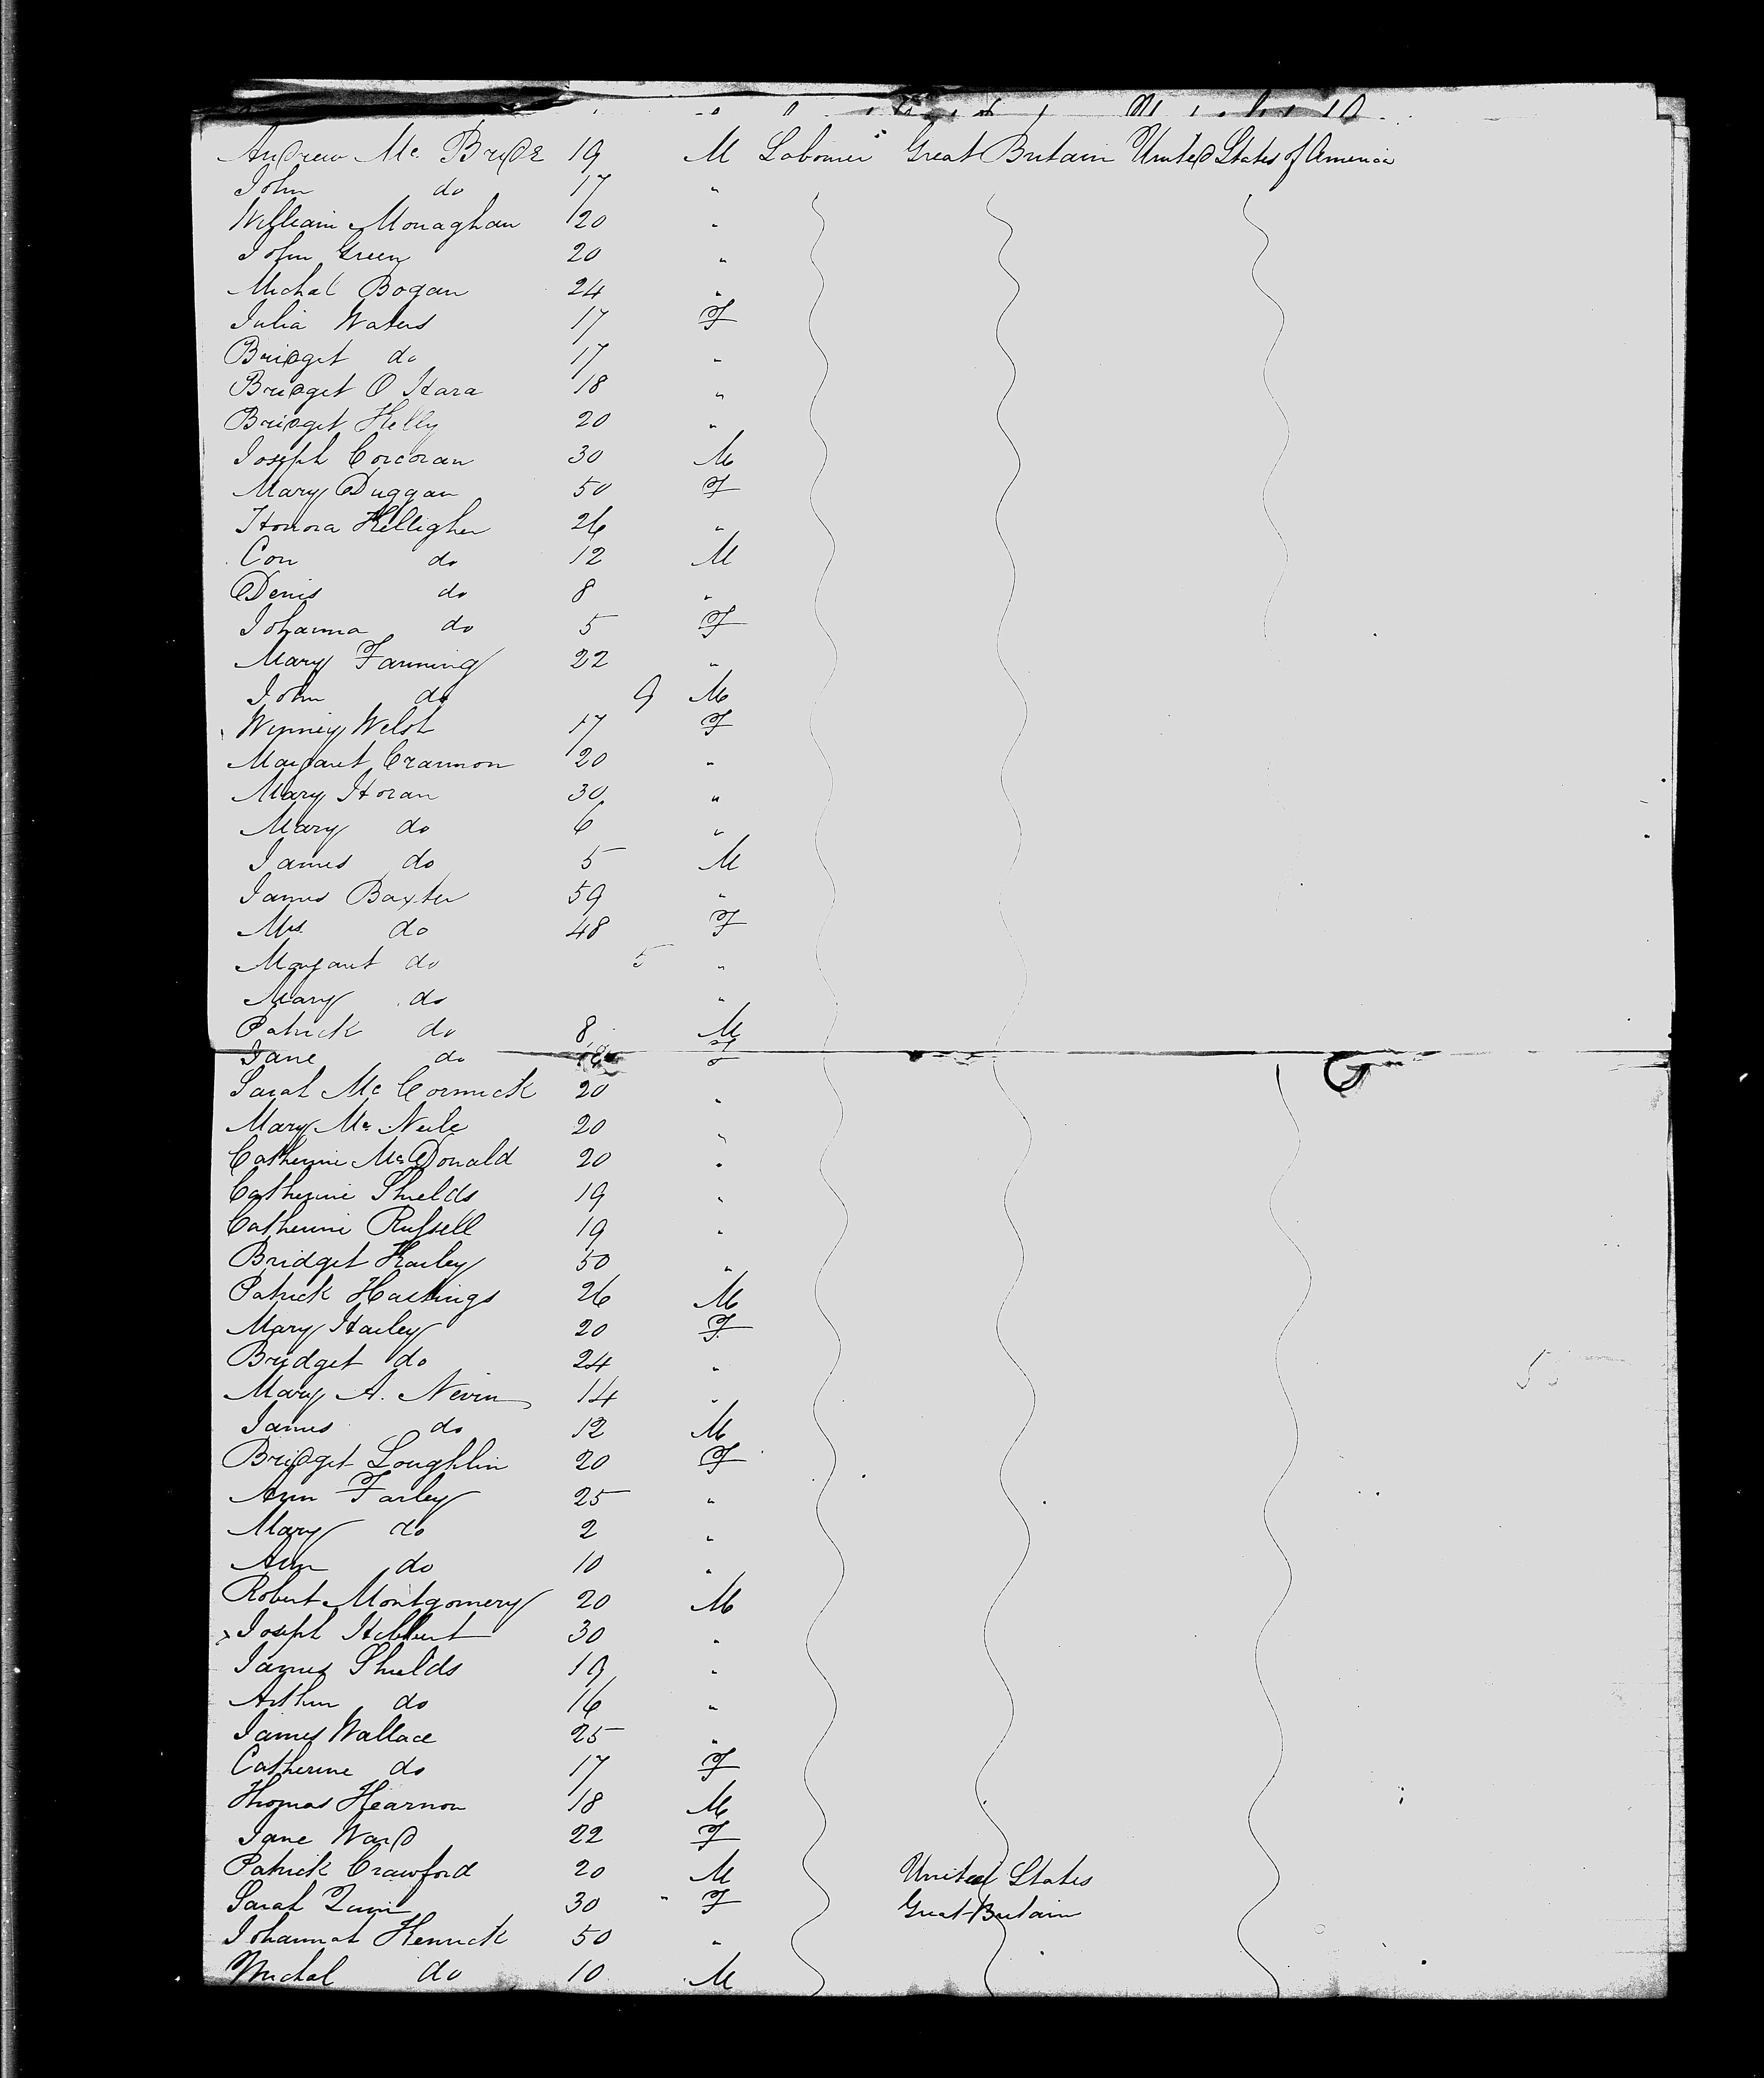 Andrew Mc. Bride 19 M Labourer Great Britain United States of America
John do 17 "
William Monaghan 20 "
John Green 20 "
Michal Bogan 24 "
Julia Waters 17 F
Bridget do 17 "
Bridget O Hara 18 "
Bridget Kelly 20 "
Joseph Corcoran 30 M
Mary Duggan 50 F
Honora Kelligher 26 "
Con do 12 M
Denis do 8 "
Johanna do 5 F
Mary Fanning 22 "
John do 9 M
Winney Welsh 17 F
Margaret Crannon 20 "
Mary Horan 30 "
Mary do 6 "
James do 5 M
James Baxter 59 "
Mrs. do 48 F
Margaret do 5 "
Mary do "
Patrick do 8 M
Jane do F
Sarah Mc Cormick 20 "
Mary Mc Neile 20 "
Catherine McDonald 20 "
Catherine Shields 19 "
Catherine Russell 19 "
Bridget Harley 50 "
Patrick Hastings 26 M
Mary Harley 20 F
Bridget do 24 "
Mary A. Nevin 14 "
James do 12 M
Bridget Loughlin 20 F
Ann Farley 25 "
Mary do 2 "
Ann do 10 "
Robert Montgomery 20 M
x Joseph 30 "
James Shields 19 "
Arthur do 16 "
James Wallace 25 "
Catherine do 17 F
Thomas Hearnon 18 M
Jane Ward 22 F
Patrick Crawford 20 M United States
Sarah Quin 30 " F Great Britain
Johannah Henrick 50 "
Michal do 10 M